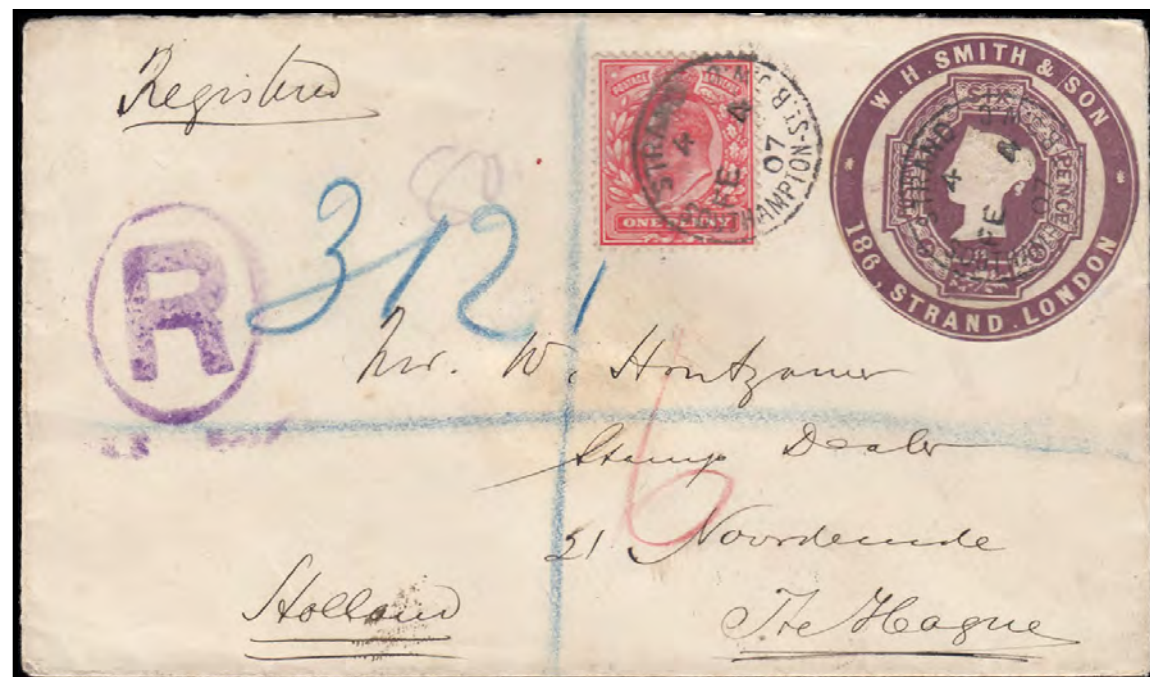 Registered
W. H. SMITH & SON
186, STRAND. LONDON
SIX PENCE
POSTAGE
ONE PENNY
STRAND
4 FE 4
07
R
312
Mr. W. Houtzamer
Stamp Dealer
21 Noordeinde
The Hague
Holland
6